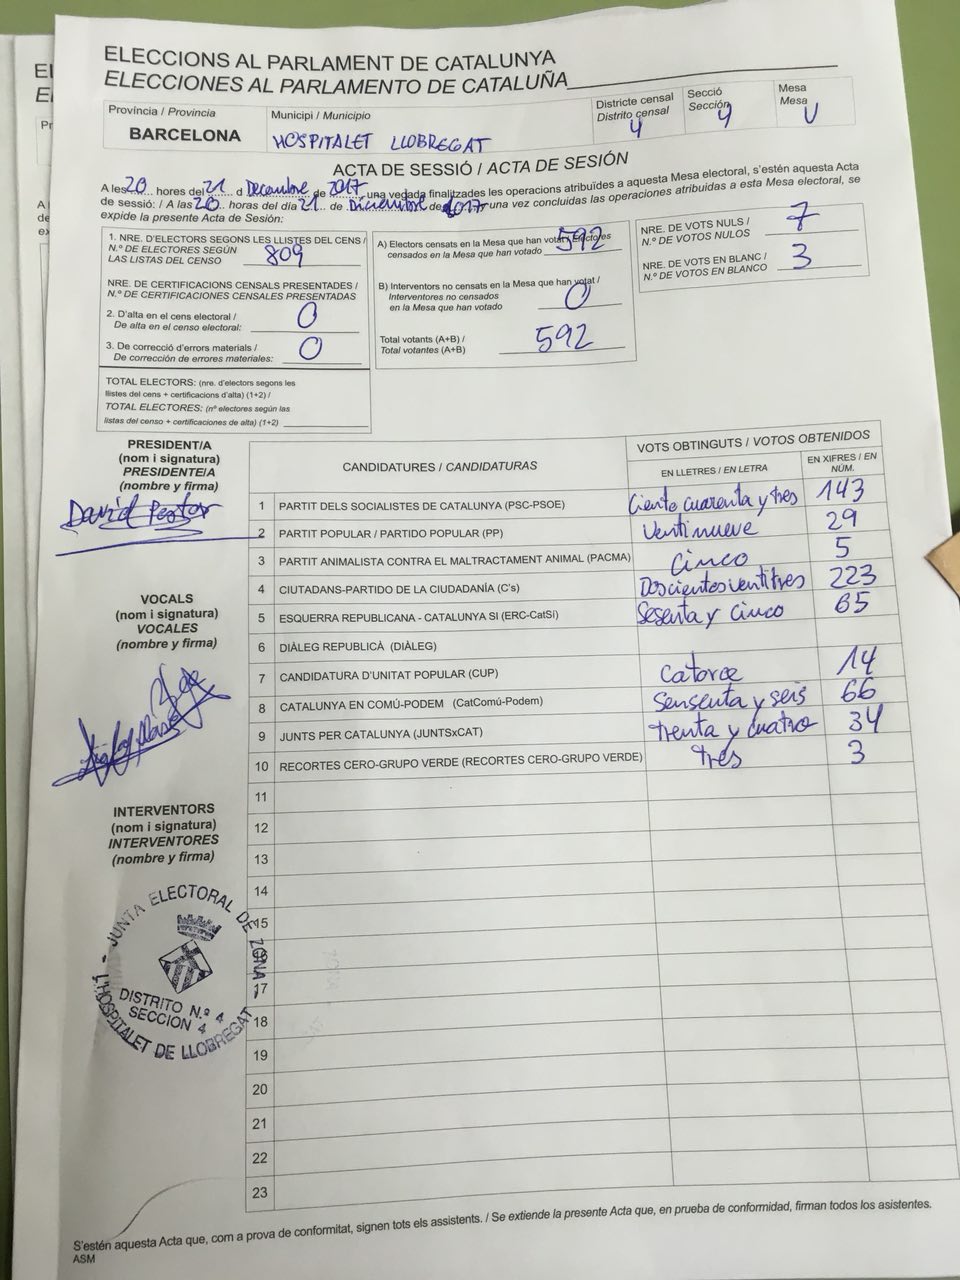 ELECCIONS AL PARLAMENT DE CATALUNYA
ELECCIONES AL PARLAMENTO DE CATALUÑA
Província / Provincia
BARCELONA
Municipi / Municipio
HOSPITALET LLOBREGAT
Districte censal
Distrito censal
4
Secció
Sección
4
Mesa
Mesa
U
ACTA DE SESSIÓ / ACTA DE SESIÓN
A les 20 hores del 21 d Decembre de 2017 una vegada finalitzades les operacions atribuïdes a aquesta Mesa electoral, s'estén aquesta Acta
de sessió: / A las 20 horas del día 21 de Diciembre de 2017 una vez concluidas las operaciones atribuidas a esta Mesa electoral, se
expide la presente Acta de Sesión:
1. NRE. D'ELECTORS SEGONS LES LLISTES DEL CENS /
N.º DE ELECTORES SEGÚN
LAS LISTAS DEL CENSO 809
NRE. DE CERTIFICACIONS CENSALS PRESENTADES /
N.º DE CERTIFICACIONES CENSALES PRESENTADAS
2. D'alta en el cens electoral /
De alta en el censo electoral: 0
3. De correcció d'errors materials /
De corrección de errores materiales: 0
TOTAL ELECTORS: (nre. d'electors segons les
llistes del cens + certificacions d'alta) (1+2) /
TOTAL ELECTORES: (nº electores según las
listas del censo + certificaciones de alta) (1+2)
A) Electors censats en la Mesa que han votat / Electores
censados en la Mesa que han votado 592
B) Interventors no censats en la Mesa que han votat /
Interventores no censados
en la Mesa que han votado 0
Total votants (A+B) /
Total votantes (A+B) 592
NRE. DE VOTS NULS /
N.º DE VOTOS NULOS 7
NRE. DE VOTS EN BLANC /
N.º DE VOTOS EN BLANCO 3
PRESIDENT/A
(nom i signatura)
PRESIDENTE/A
(nombre y firma)
David Pastor
VOCALS
(nom i signatura)
VOCALES
(nombre y firma)
INTERVENTORS
(nom i signatura)
INTERVENTORES
(nombre y firma)
JUNTA ELECTORAL DE ZONA
DISTRITO N.º 4
SECCION 4
L'HOSPITALET DE LLOBREGAT
CANDIDATURES / CANDIDATURAS
VOTS OBTINGUTS / VOTOS OBTENIDOS
EN LLETRES / EN LETRA
EN XIFRES / EN
NÚM.
1 PARTIT DELS SOCIALISTES DE CATALUNYA (PSC-PSOE) Ciento cuarenta y tres 143
2 PARTIT POPULAR / PARTIDO POPULAR (PP) Ventinueve 29
3 PARTIT ANIMALISTA CONTRA EL MALTRACTAMENT ANIMAL (PACMA) Cinco 5
4 CIUTADANS-PARTIDO DE LA CIUDADANÍA (C's) Doscientosventitres 223
5 ESQUERRA REPUBLICANA - CATALUNYA SI (ERC-CatSí) Sesenta y Cinco 65
6 DIÀLEG REPUBLICÀ (DIÀLEG)
7 CANDIDATURA D'UNITAT POPULAR (CUP) Catorce 14
8 CATALUNYA EN COMÚ-PODEM (CatComú-Podem) Sensenta y seis 66
9 JUNTS PER CATALUNYA (JUNTSxCAT) trenta y cuatro 34
10 RECORTES CERO-GRUPO VERDE (RECORTES CERO-GRUPO VERDE) tres 3
11
12
13
14
15
16
17
18
19
20
21
22
23
S'estén aquesta Acta que, com a prova de conformitat, signen tots els assistents. / Se extiende la presente Acta que, en prueba de conformidad, firman todos los asistentes.
ASM